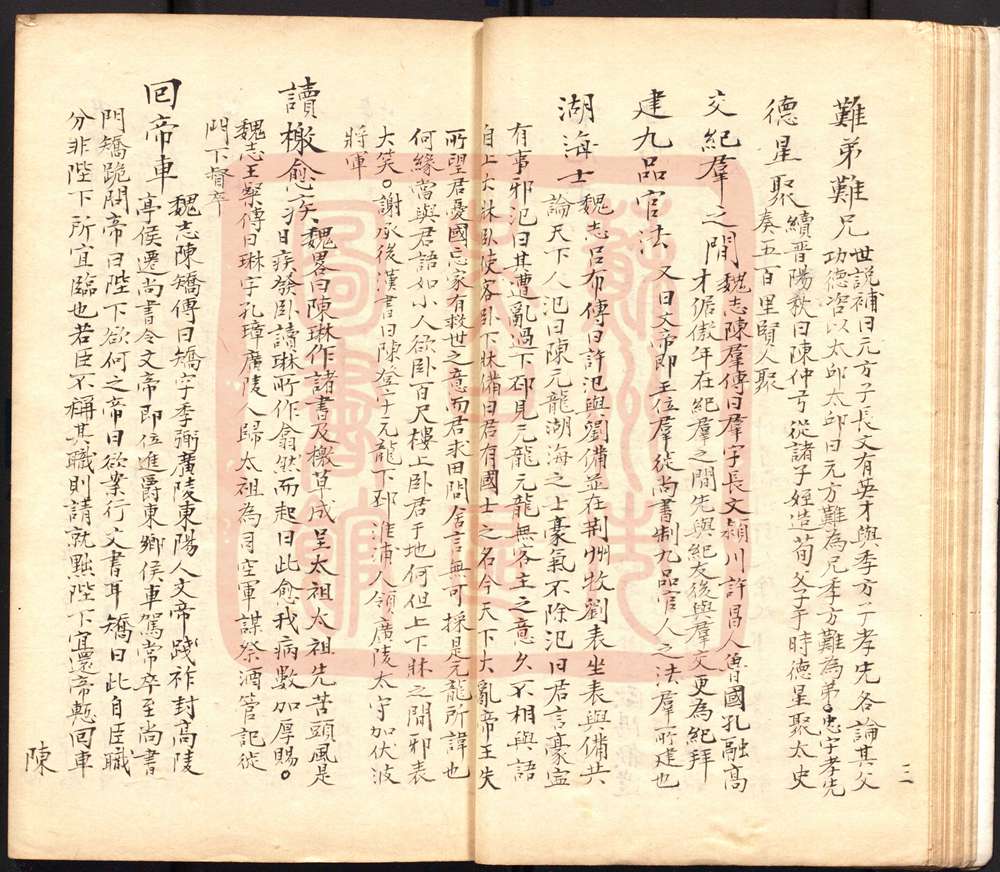 難弟難兄 世說補曰元方子長文有英才與季方子孝先各論其父
功德咨以太邱太邱曰元方難為兄季方難為弟忠字孝先
德星聚 續晉陽秋曰陳仲弓從諸子姪造荀父子于時德星聚太史
奏五百里賢人聚
交紀羣之間 魏志陳羣傳曰羣字長文潁川許昌人魯國孔融高
才倨傲年在紀羣之間先與紀友後與羣交更為紀拜
建九品官法 又曰文帝即王位羣徙尚書制九品官人之法羣所建也
湖海士 魏志呂布傳曰許汜與劉備並在荆州牧劉表坐表與備共
論天下人汜曰陳元龍湖海之士豪氣不除汜曰君言豪寧
有事邪汜曰其遭亂過下邳見元龍元龍無客主之意久不相與語
自上大牀臥使客臥下牀備曰君有國士之名今天下大亂帝王失
所望君憂國忘家有救世之意而君求田問舍言無可採是元龍所諱也
何緣當與君語如小人欲臥百尺樓上臥君于地何但上下牀之間邪表
大笑。謝承後漢書曰陳登字元龍下邳淮浦人領廣陵太守加伏波
將軍
讀檄愈疾 魏畧曰陳琳作諸書及檄草成呈太祖太祖先苦頭風是
日疾發臥讀琳所作翕然而起曰此愈我病數加厚賜。
魏志王粲傳曰琳字孔璋廣陵人歸太祖為司空軍謀祭酒管記徙
門下督卒
回帝車 魏志陳矯傳曰矯字季弼廣陵東陽人文帝踐祚封高陵
亭侯遷尚書令文帝即位進爵東鄉侯車駕常卒至尚書
門矯跪問帝曰陛下欲何之帝曰欲案行文書耳矯曰此自臣職
分非陛下所宜臨也若臣不稱其職則請就黜陛下宜還帝慙回車
陳
三